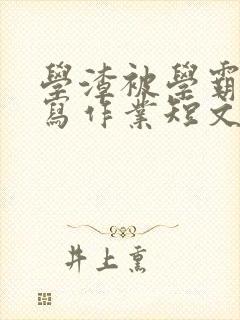 學渣被學霸
寫作業短文
井上熏